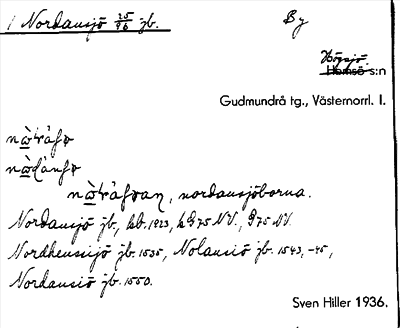 1 Nordansjö 25/96 jb. By
Högsjö
Hemsö s:n
Gudmundrå tg., Västernorrl. l.
nordansjöborna.
Nordansjö jb., kb. 1923, kG75 NV., G75 NV.
jb. 1535, Nolansiö jb. 1543, -45,
Nordansiö jb. 1550.
Sven Hiller 1936.